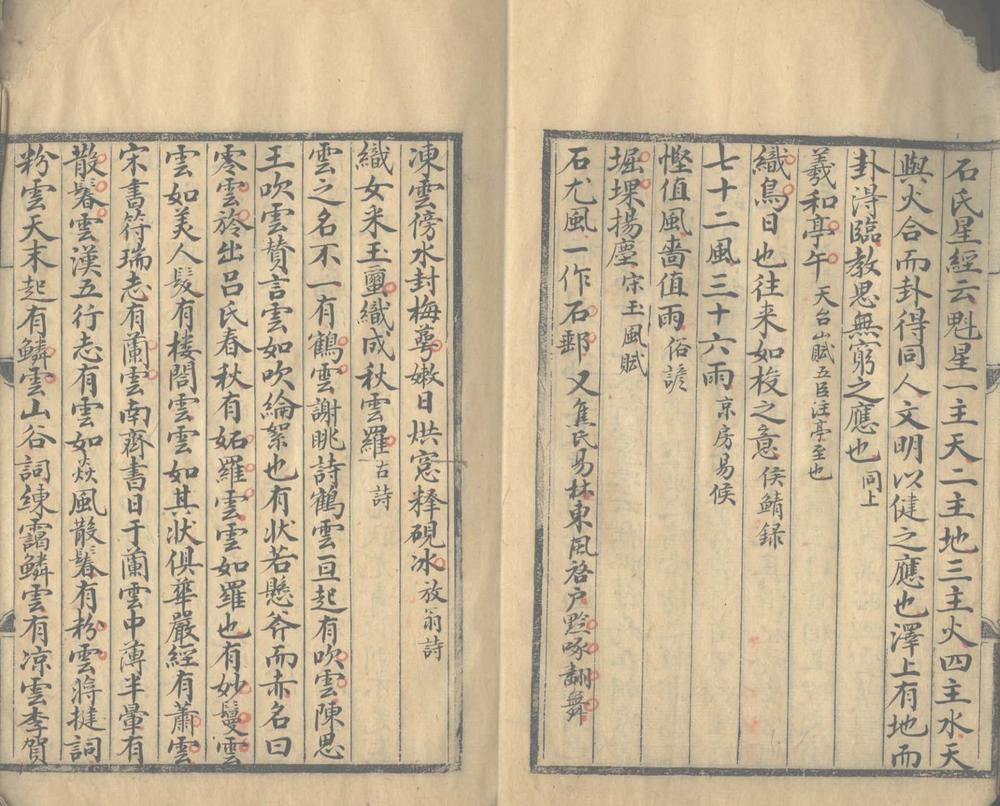 石氏星經云魁星一主天二主地三主火四主水天
與火合而卦得同人文明以健之應也澤上有地而
卦得臨教思無窮之應也同上
羲和亭午天台山賦五臣注亭至也
織烏日也往来如梭之意侯鯖録
七十二風三十六雨京房易候
慳值風嗇值雨俗諺
堀堁揚塵宋玉風賦
石尤風一作石郵又焦氏易林東風啓户黔啄翻舞
凍雲傍水封梅萼嫩日烘窓釋硯冰放翁詩
織女采玉璽織成秋雲羅古詩
雲之名不一有鶴雲謝眺詩鶴雲亘起有吹雲陳思
王吹雲贊言雲如吹綸絮也有状若懸斧而赤名曰
零雲於出吕氏春秋有妬羅雲雲如羅也有妙鬘雲
雲如美人髮有楼閣雲雲如其状俱華嚴經有蕭雲
宋書符瑞志有蘭雲南齊書日于蘭雲中薄半暈有
散鬊雲漢五行志有雲如焱風散鬊有粉雲蔣捷詞
粉雲天末起有鱗雲山谷詞練靄鱗雲有凉雲李賀